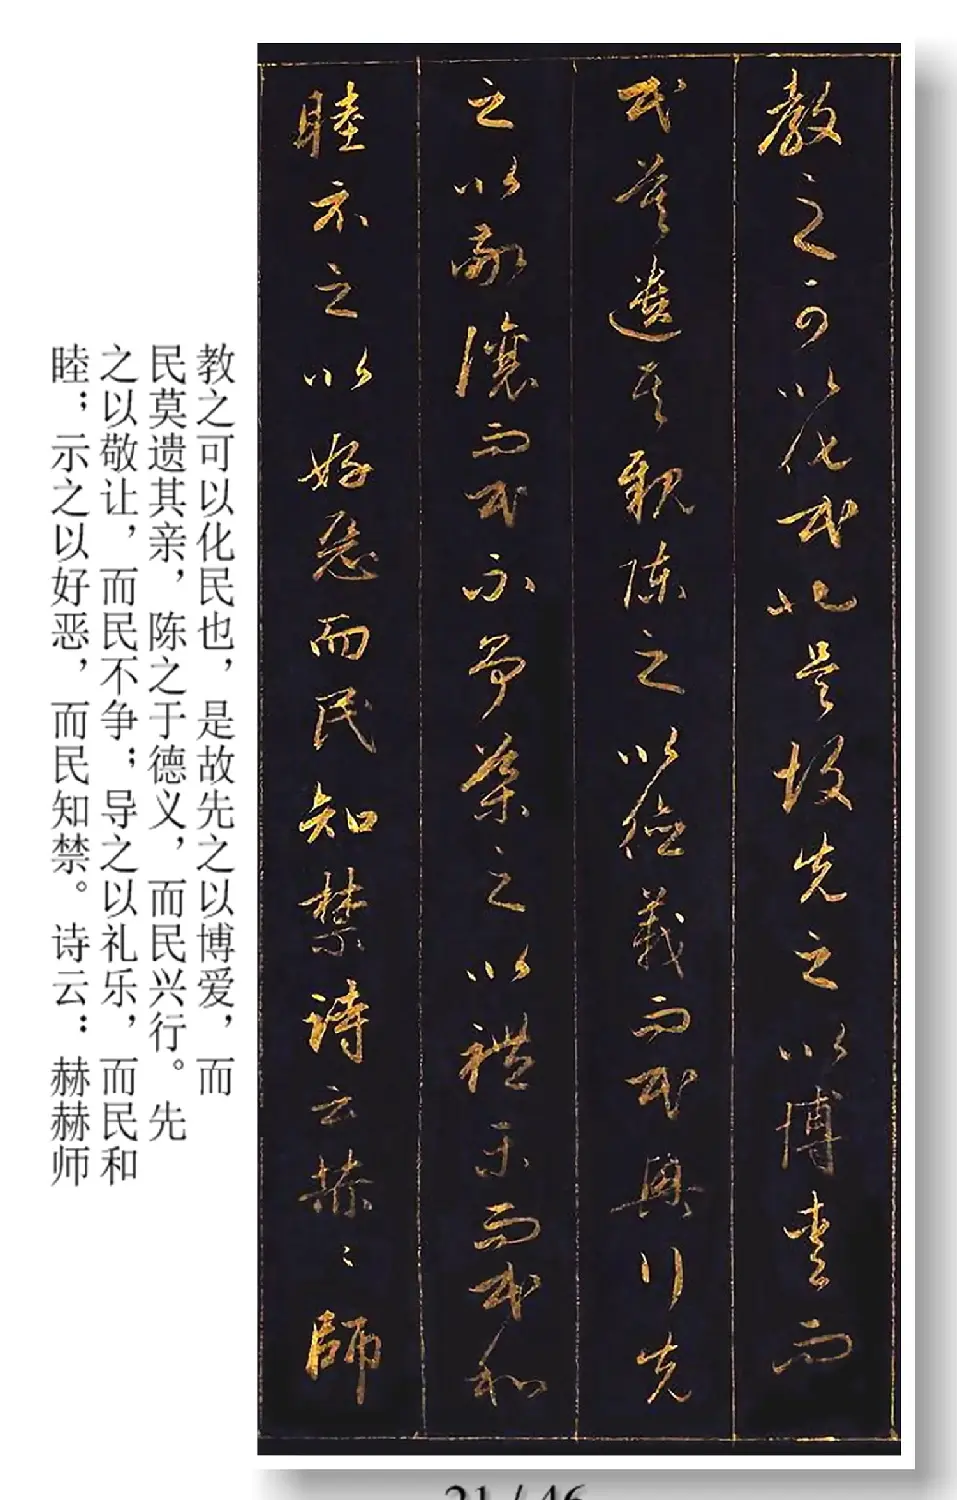 教之可以化民也是故先之以博愛而
民莫遺其親陳之以德義而民興行先
之以敬讓而民不爭導之以禮樂而民和
睦示之以好惡而民知禁詩云赫〻師
教之可以化民也，是故先之以博爱，而
民莫遗其亲，陈之于德义，而民兴行。先
之以敬让，而民不争；导之以礼乐，而民和
睦；示之以好恶，而民知禁。诗云：赫赫师
21 / 46